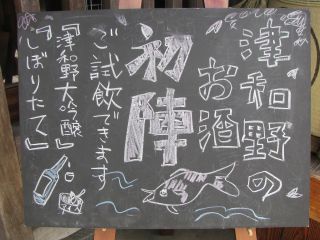 津和野の
お酒
初陣
ご試飲できます
『津和野大吟醸』
『しぼりたて』